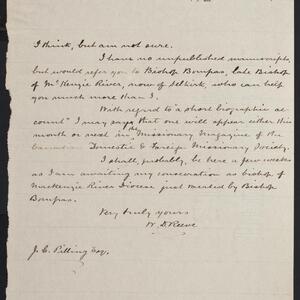 I think, but am not sure.
I have no unpublished manuscripts,
but would refer you to Bishop Bompas, late Bishop
of McKenzie River, now of Selkirk, who can help
you much more than I.
With regard to a "short biographic ac
count" I may say that one will appear either this
month or next in the Missionary Magazine of the
Canadian Domestic & Foreign Missionary Society.
I shall, probably, be here a few weeks
as I am awaiting my consecration as bishop of
Mackenzie River Diocese just vacated by Bishop
Bompas.
Very truly yours
W. D. Reeve
J. C. Pilling Esq.